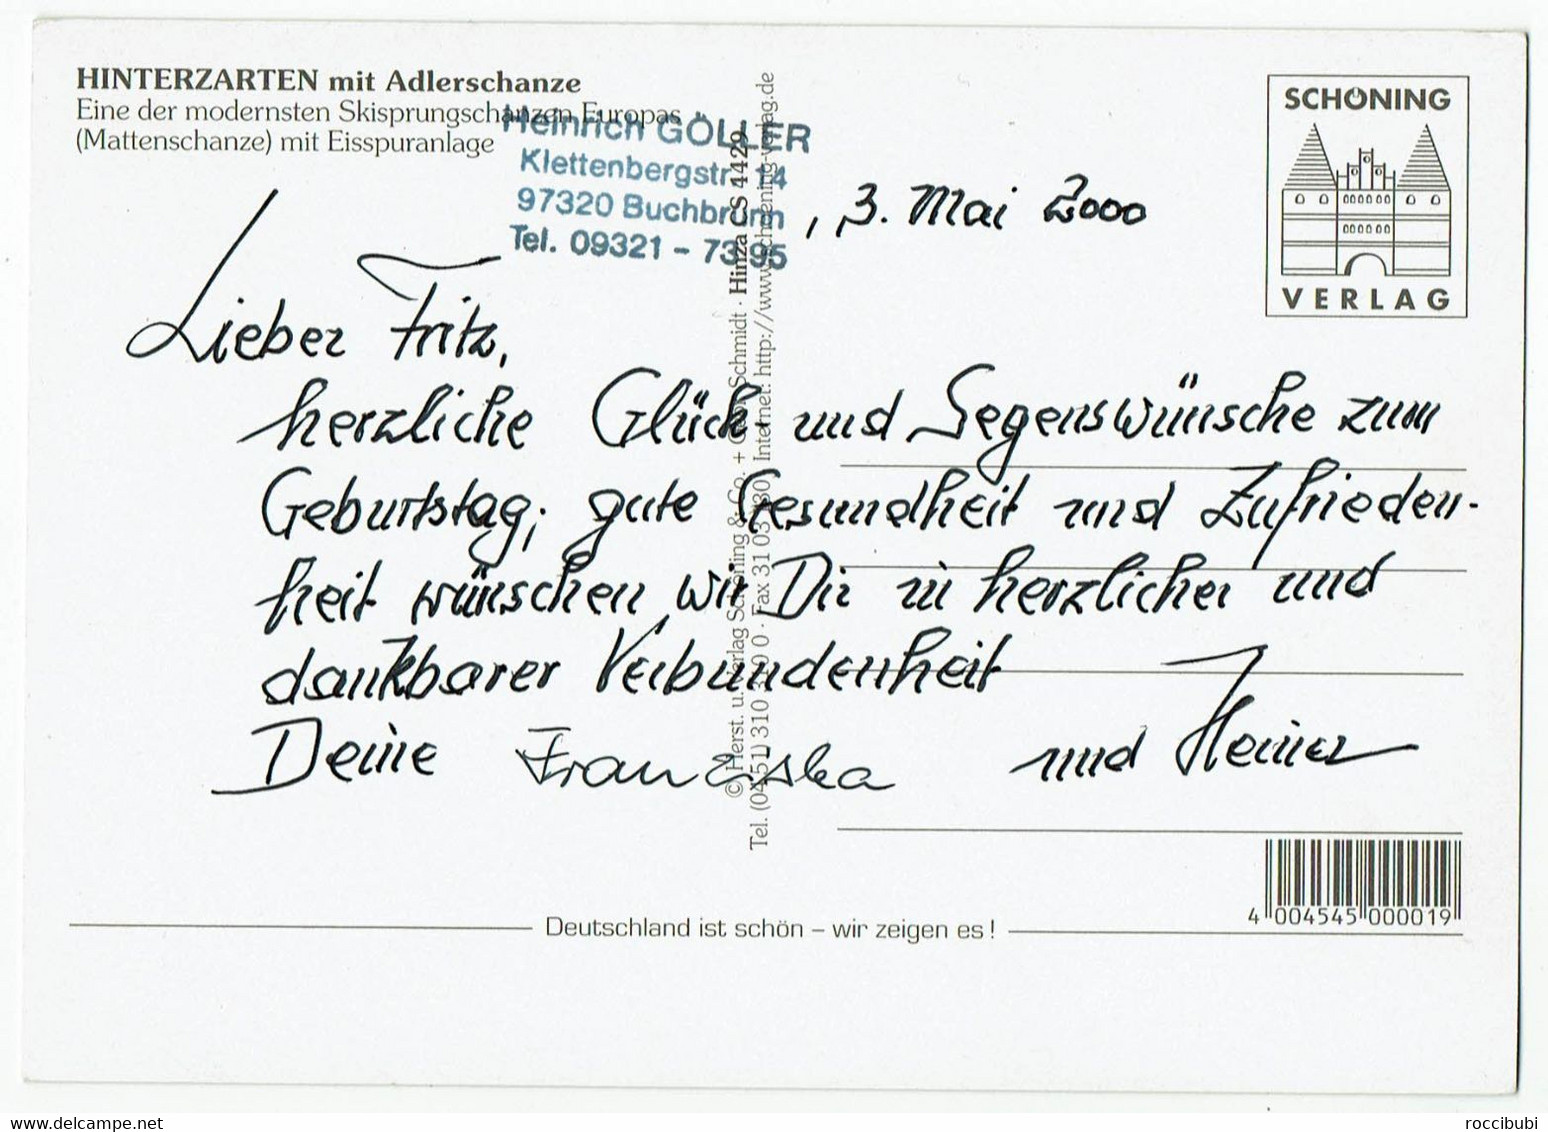 HINTERZARTEN mit Adlerschanze
Eine der modernsten Skisprungschanzen Europas
(Mattenschanze) mit Eisspuranlage
Heinrich GÖLLER
Klettenbergstr. 14
97320 Buchbrunn
Tel. 09321 - 73 95
, 3. Mai 2000
SCHÖNING
VERLAG
Lieber Fritz,
herzliche Glück- und Segenswünsche zum
Geburtstag; gute Gesundheit und Zufrieden-
heit wünschen wir Dir in herzlicher und
dankbarer Verbundenheit
Deine Franziska und Heiner
© Herst. u. Verlag Schöning & Co. + Schmidt · Hinza CS 4429
Tel. (0451) 310 310 0 · Fax 31 03 30 Internet: http://www.schoening-verlag.de
4 004545 000019
Deutschland ist schön – wir zeigen es!
delcampe.net
roccibubi